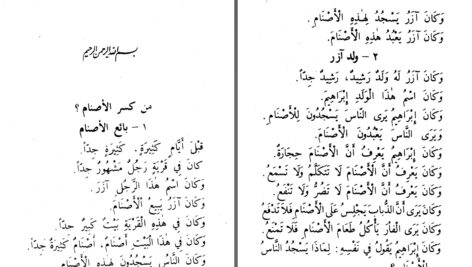 بسم الله الرحمن الرحيم
من كسر الأصنام ؟
١ - بائع الأصنام
قَبْلَ أَيَّامٍ كَثِيرَةٍ. كَثِيرَةٍ جِدّاً.
كَانَ فِي قَرْيَةٍ رَجُلٌ مَشْهُورٌ جِدّاً.
وَكَانَ اسْمُ هٰذَا الرَّجُلِ آزَرَ.
وَكَانَ آزَرُ يَبِيعُ الْأَصْنَامَ.
وَكَانَ فِي هٰذِهِ الْقَرْيَةِ بَيْتٌ كَبِيرٌ جِدّاً.
وَكَانَ فِي هٰذَا الْبَيْتِ أَصْنَامٌ، أَصْنَامٌ كَثِيرَةٌ جِدّاً.
وَكَانَ النَّاسُ يَسْجُدُونَ لِهٰذِهِ الْأَصْنَامِ.
وَكَانَ آزَرُ يَسْجُدُ لِهٰذِهِ الْأَصْنَامِ.
وَكَانَ آزَرُ يَعْبُدُ هٰذِهِ الْأَصْنَامَ.
٢ - ولد آزر
وَكَانَ آزَرُ لَهُ وَلَدٌ رَشِيدٌ، رَشِيدٌ جِدّاً.
وَكَانَ اسْمُ هٰذَا الْوَلَدِ إِبْرَاهِيمَ.
وَكَانَ إِبْرَاهِيمُ يَرَى النَّاسَ يَسْجُدُونَ لِلْأَصْنَامِ.
وَيَرَى النَّاسَ يَعْبُدُونَ الْأَصْنَامَ.
وَكَانَ إِبْرَاهِيمُ يَعْرِفُ أَنَّ الْأَصْنَامَ حِجَارَةٌ.
وَكَانَ يَعْرِفُ أَنَّ الْأَصْنَامَ لَا تَتَكَلَّمُ وَلَا تَسْمَعُ.
وَكَانَ يَعْرِفُ أَنَّ الْأَصْنَامَ لَا تَضُرُّ وَلَا تَنْفَعُ.
وَكَانَ يَرَى أَنَّ الذُّبَابَ يَجْلِسُ عَلَى الْأَصْنَامِ فَلَا تَدْفَعُ
وَكَانَ يَرَى الْفَأْرَ يَأْكُلُ طَعَامَ الْأَصْنَامِ فَلَا تَمْنَعُ.
وَكَانَ إِبْرَاهِيمُ يَقُولُ فِي نَفْسِهِ: لِمَاذَا يَسْجُدُ النَّاسُ